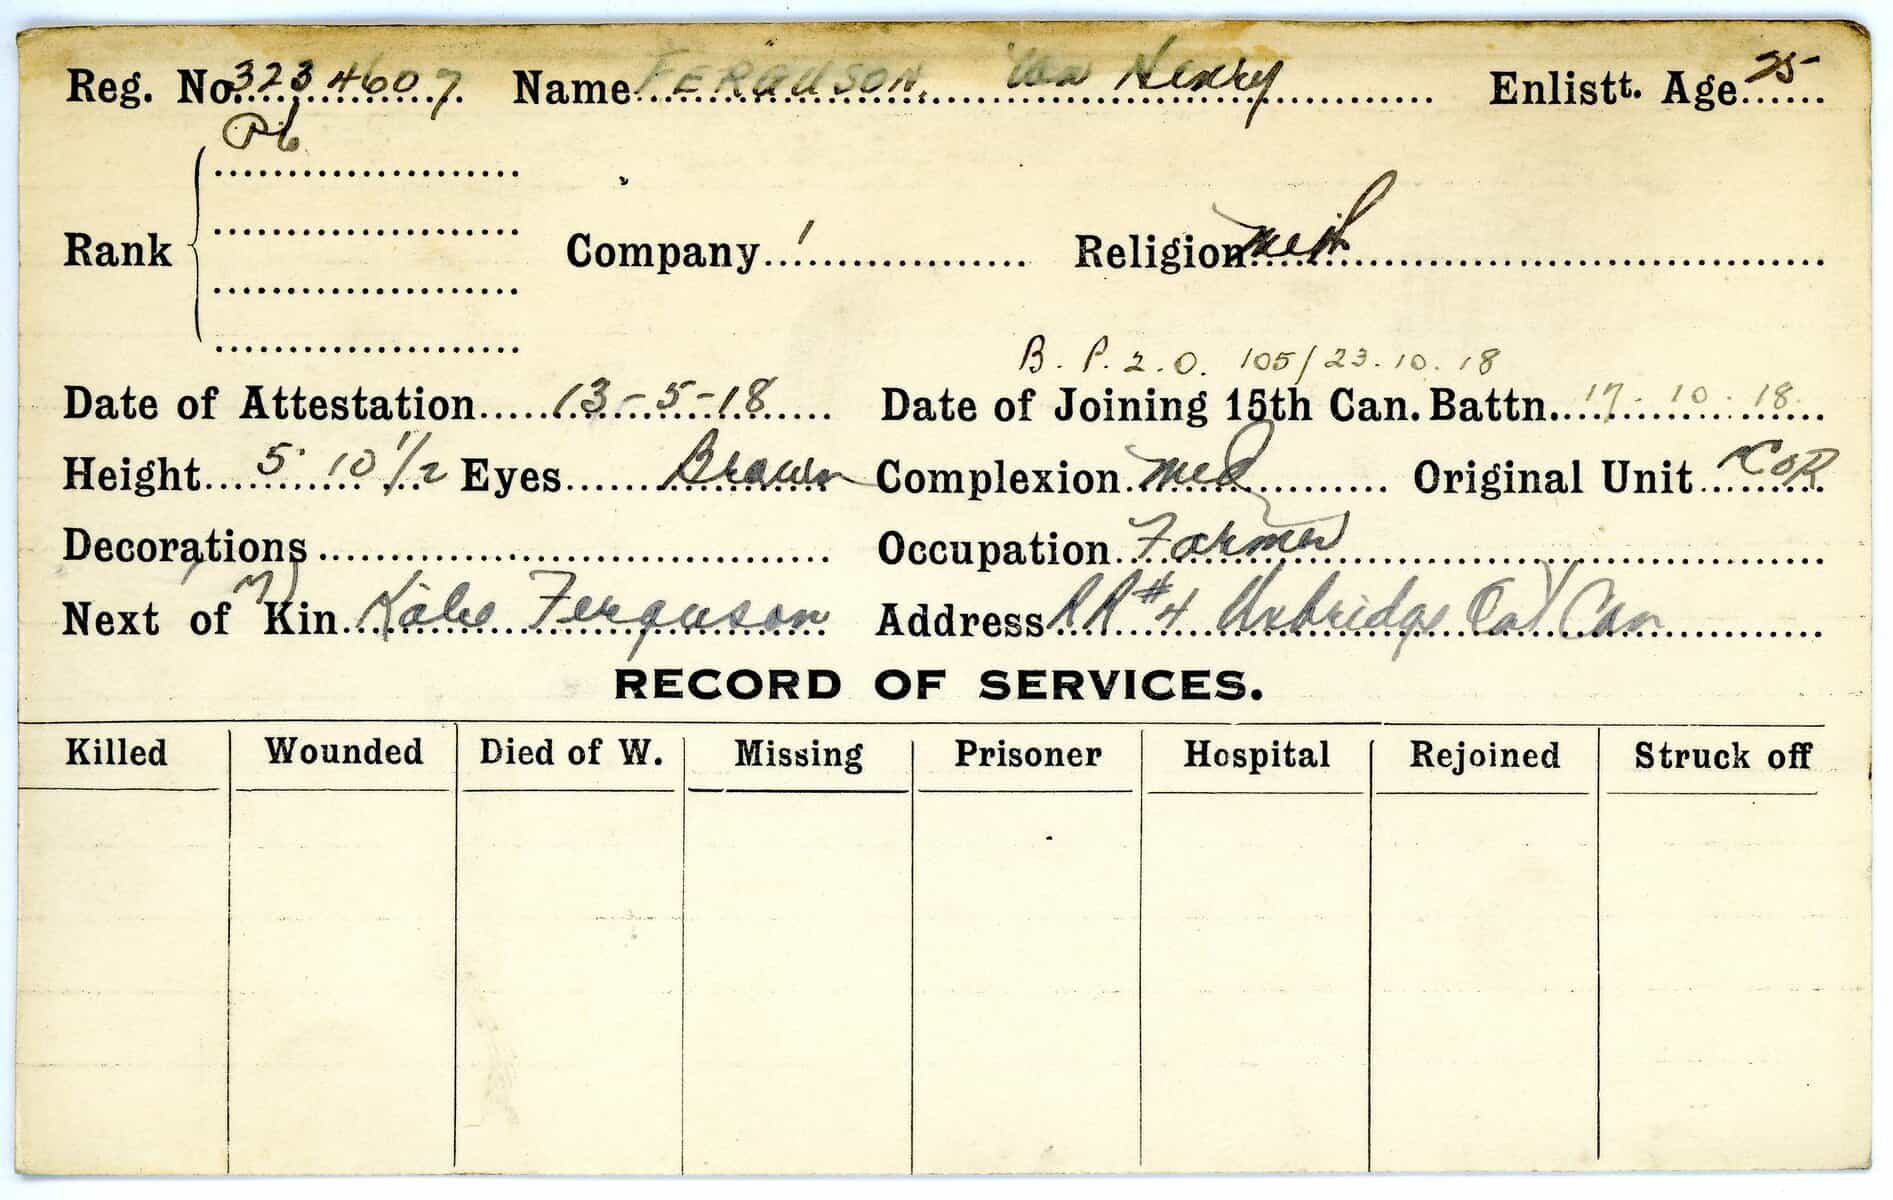 Reg. No. 3234607 Name FERGUSON, Wm Henry Enlistt. Age 25
Pte
Rank Company 1 Religion Meth
B.P.2.O. 105/23.10.18
Date of Attestation 13-5-18 Date of Joining 15th Can. Battn. 17-10-18
Height 5' 10 1/2 Eyes Brown Complexion Med Original Unit COR
Decorations Occupation Farmer
Next of Kin Ferguson Address RR #4 Uxbridge Ont Can
RECORD OF SERVICES.
Killed Wounded Died of W. Missing Prisoner Hospital Rejoined Struck off